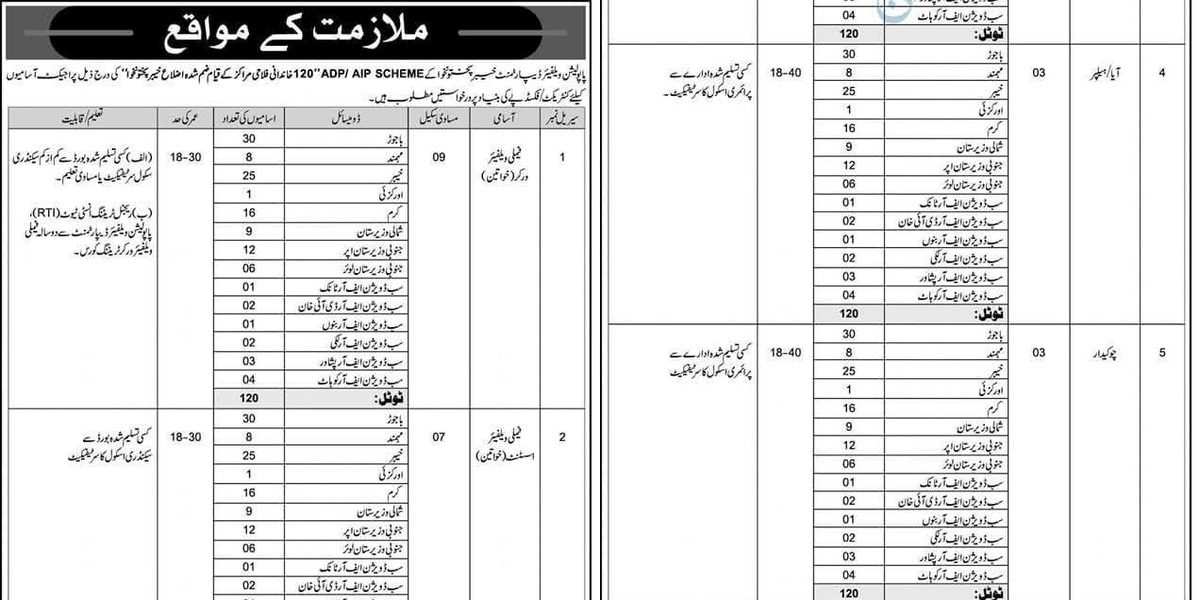 ملازمت کے مواقع
پاپولیشن ویلفیئر ڈیپارٹمنٹ خیبر پختونخوا کے ADP/ AIP SCHEME "120 خاندانی فلاحی مراکز کے قیام ضم شدہ اضلاع خیبر پختونخوا" کی درج ذیل پراجیکٹ آسامیوں
کیلئے کنٹریکٹ/فکسڈ پے کی بنیاد پر درخواستیں مطلوب ہیں۔
سیریل نمبر آسامی مساوی سکیل ڈومیسائل اسامیوں کی تعداد عمر کی حد تعلیم/قابلیت
1 فیملی ویلفیئر ورکر (خواتین) 09 18-30
(الف) کسی تسلیم شدہ بورڈ سے کم از کم سیکنڈری
سکول سرٹیفیکیٹ یا مساوی تعلیم۔
(ب) ریجنل ٹریننگ انسٹی ٹیوٹ (RTI)،
پاپولیشن ویلفیئر ڈیپارٹمنٹ سے دو سالہ فیملی
ویلفیئر ورکر ٹریننگ کورس۔
باجوڑ 30
مہمند 8
خیبر 25
اورکزئی 1
کرم 16
شمالی وزیرستان 9
جنوبی وزیرستان اپر 12
جنوبی وزیرستان لوئر 06
سب ڈویژن ایف آر ٹانک 01
سب ڈویژن ایف آر ڈی آئی خان 02
سب ڈویژن ایف آر بنوں 01
سب ڈویژن ایف آر لکی 02
سب ڈویژن ایف آر پشاور 03
سب ڈویژن ایف آر کوہاٹ 04
ٹوٹل: 120
2 فیملی ویلفیئر اسسٹنٹ (خواتین) 07 18-30
کسی تسلیم شدہ بورڈ سے
سیکنڈری اسکول کا سرٹیفکیٹ
باجوڑ 30
مہمند 8
خیبر 25
اورکزئی 1
کرم 16
شمالی وزیرستان 9
جنوبی وزیرستان اپر 12
جنوبی وزیرستان لوئر 06
سب ڈویژن ایف آر ٹانک 01
سب ڈویژن ایف آر ڈی آئی خان 02
سب ڈویژن ایف آر کوہاٹ 04
ٹوٹل: 120
4 آیا/ہیلپر 03 18-40
کسی تسلیم شدہ ادارے سے
پرائمری اسکول کا سرٹیفکیٹ۔
باجوڑ 30
مہمند 8
خیبر 25
اورکزئی 1
کرم 16
شمالی وزیرستان 9
جنوبی وزیرستان اپر 12
جنوبی وزیرستان لوئر 06
سب ڈویژن ایف آر ٹانک 01
سب ڈویژن ایف آر ڈی آئی خان 02
سب ڈویژن ایف آر بنوں 01
سب ڈویژن ایف آر لکی 02
سب ڈویژن ایف آر پشاور 03
سب ڈویژن ایف آر کوہاٹ 04
ٹوٹل: 120
5 چوکیدار 03 18-40
کسی تسلیم شدہ ادارے سے
پرائمری اسکول کا سرٹیفکیٹ
باجوڑ 30
مہمند 8
خیبر 25
اورکزئی 1
کرم 16
شمالی وزیرستان 9
جنوبی وزیرستان اپر 12
جنوبی وزیرستان لوئر 06
سب ڈویژن ایف آر ٹانک 01
سب ڈویژن ایف آر ڈی آئی خان 02
سب ڈویژن ایف آر بنوں 01
سب ڈویژن ایف آر لکی 02
سب ڈویژن ایف آر پشاور 03
سب ڈویژن ایف آر کوہاٹ 04
ٹوٹل: 120